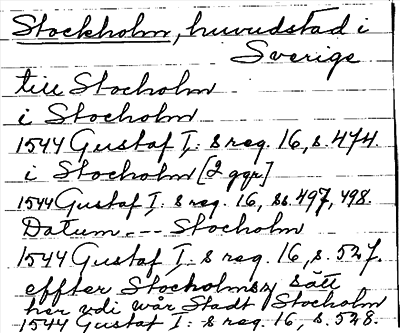 Stockholm, huvudstad i
Sverige
till Stocholm
i Stocholm
1544 Gustaf I: s reg. 16, s. 474.
i Stocholm [2 ggr]
1544 Gustaf I: s reg. 16, ss. 497, 498.
Datum --- Stocholm
1544 Gustaf I: s reg. 16, s. 527.
effter Stocholms sätt
her vdi wår Stadt Stocholm
1544 Gustaf I: s reg. 16, s. 528.